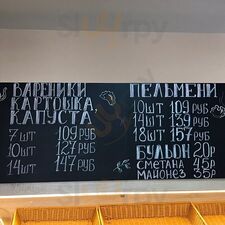 ВАРЕНИКИ
КАРТОШКА,
КАПУСТА
7 шт 109 руб
10шт 127 руб
14шт 147 руб
ПЕЛЬМЕНИ
10шт 109 руб
14шт 139 руб
18шт 157 руб
БУЛЬОН 20р
СМЕТАНА 45р
МАЙОНЕЗ 35р